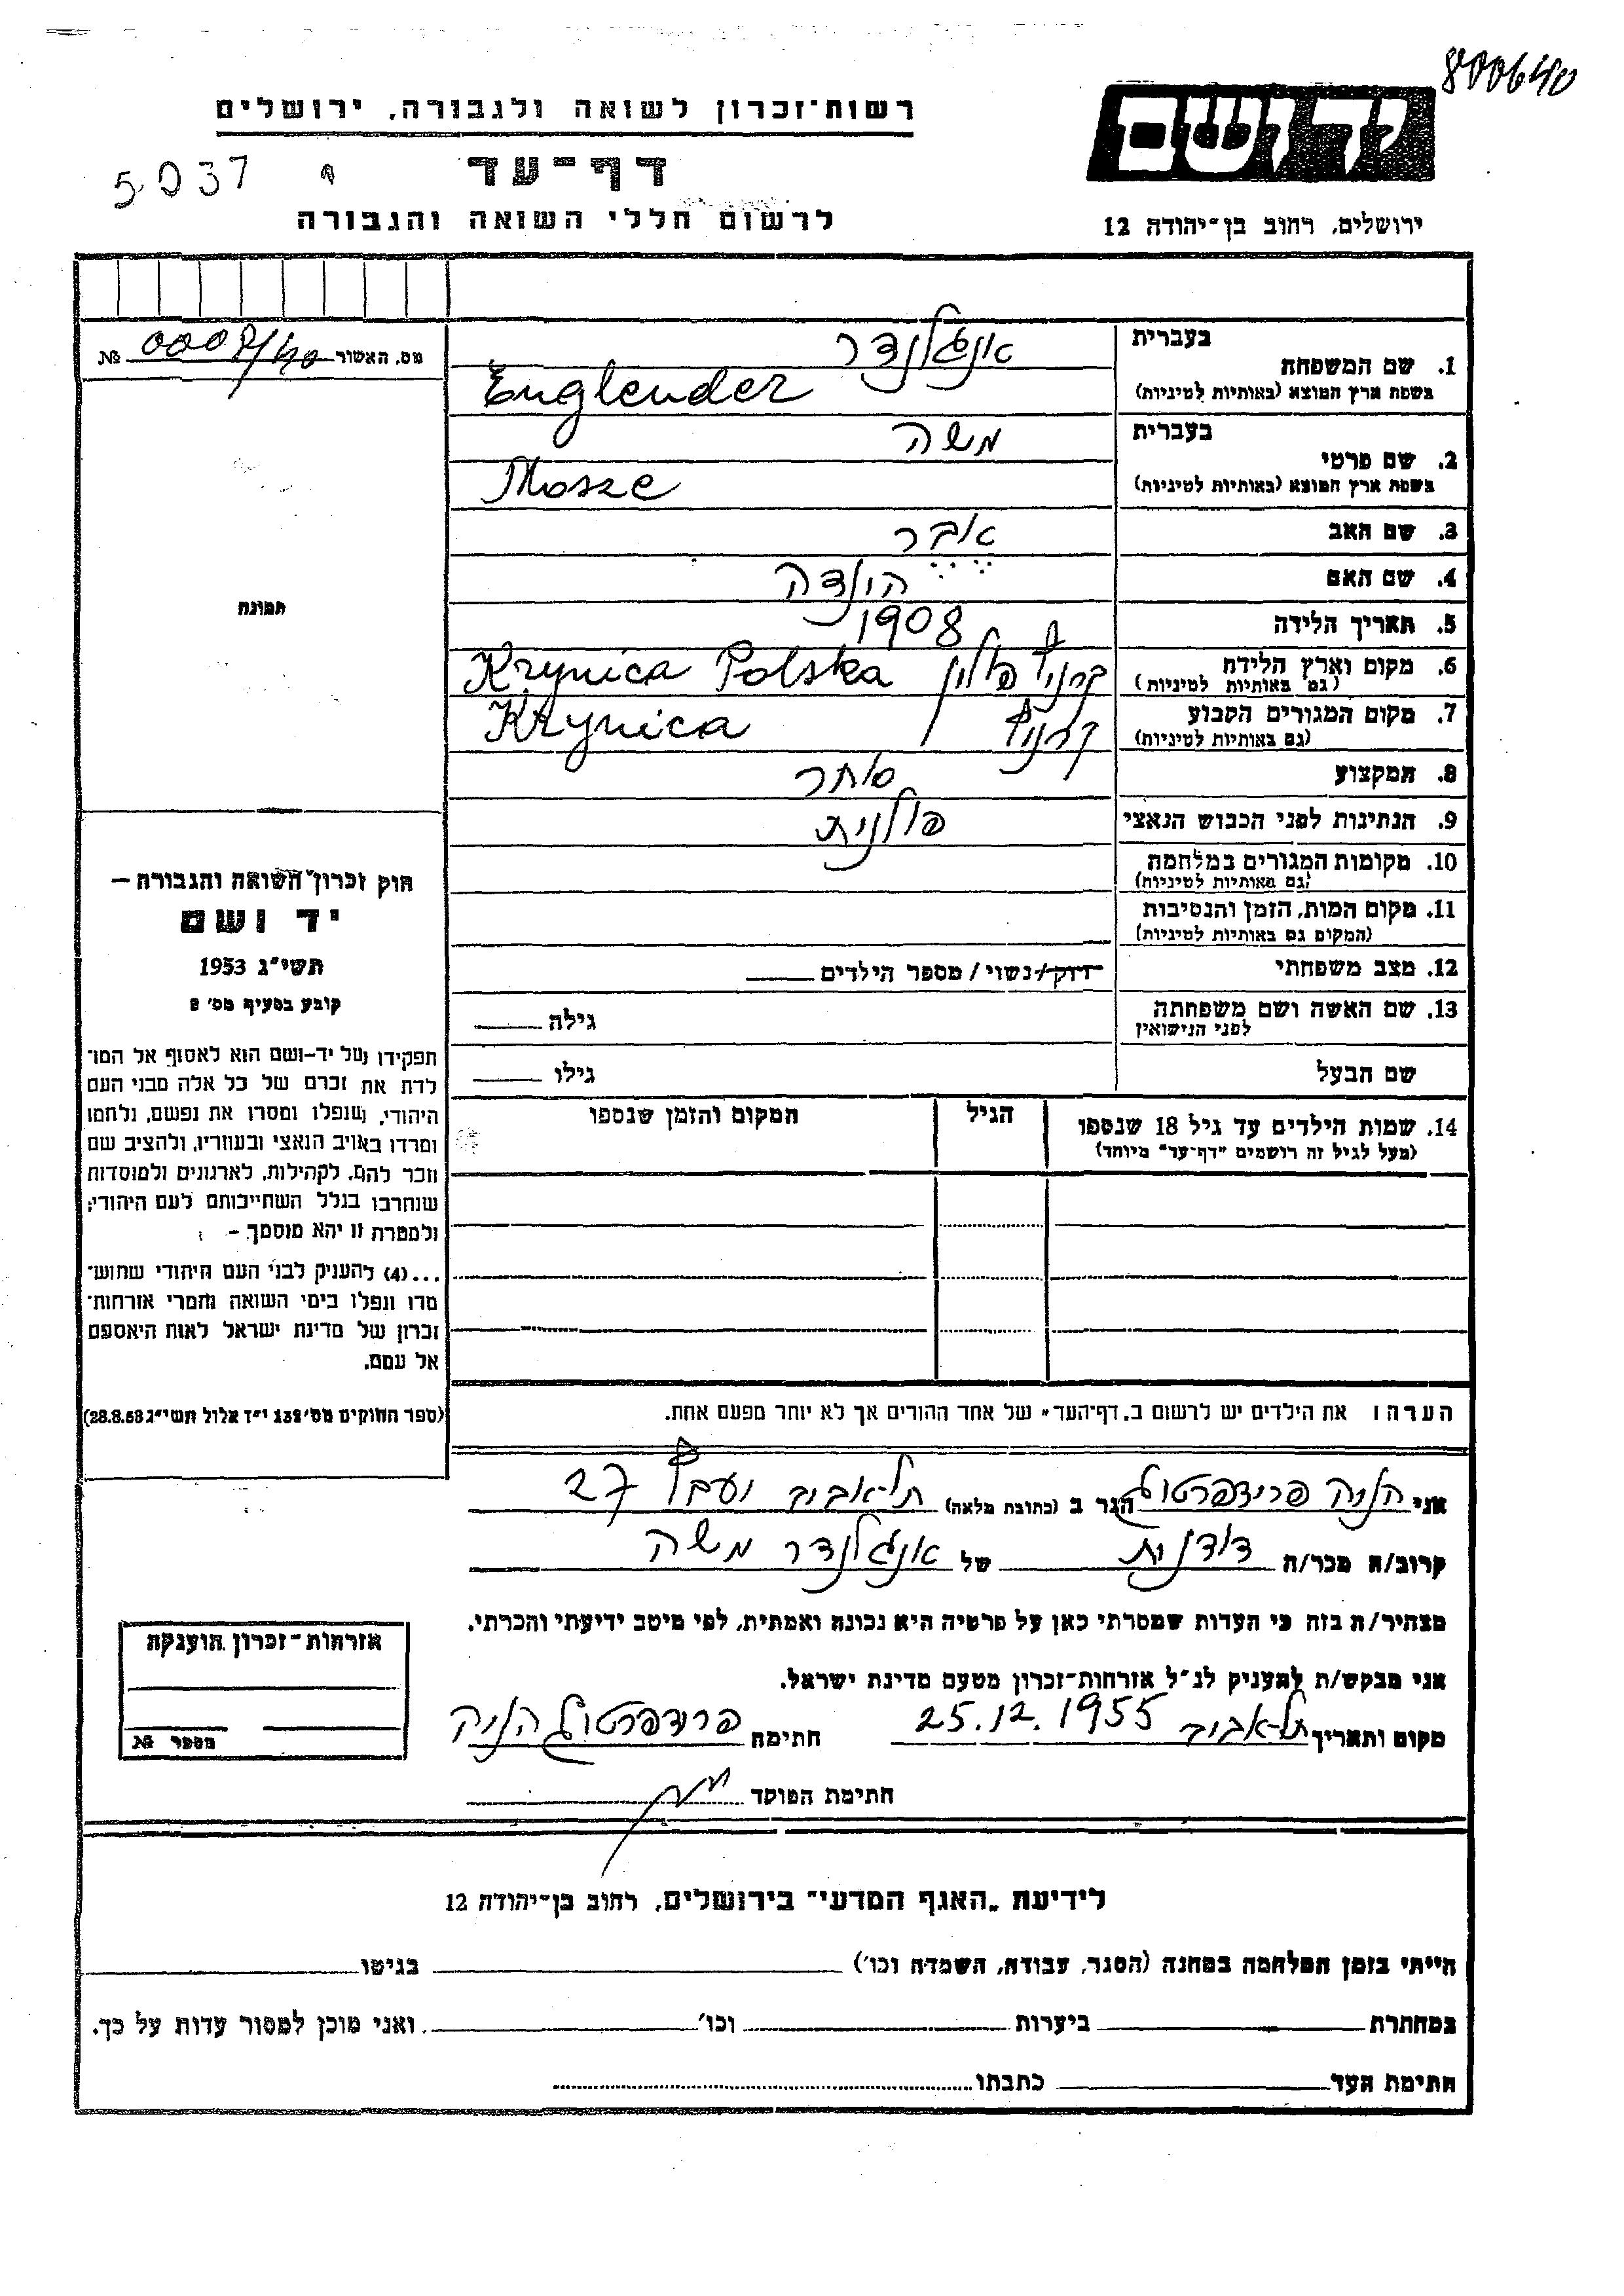 800640
יד ושם
ירושלים, רחוב בן-יהודה 12
רשות-זכרון לשואה ולגבורה, ירושלים
דף-עד
5037
לרשום חללי השואה והגבורה
מס. האשור №
1. שם המשפחה
בעברית אנגלנדר
בשפת ארץ המוצא (באותיות לטיניות) Englender
2. שם פרטי
בעברית משה
בשפת ארץ המוצא (באותיות לטיניות) Mosze
3. שם האב אבר
4. שם האם
5. תאריך הלידה 1908
6. מקום וארץ הלידה
(גם באותיות לטיניות) פולין Krynica Polska
7. מקום המגורים הקבוע
(גם באותיות לטיניות) Krynica
8. המקצוע סוחר
9. הנתינות לפני הכבוש הנאצי פולנית
10. מקומות המגורים במלחמה
(גם באותיות לטיניות)
11. מקום המות, הזמן והנסיבות
(המקום גם באותיות לטיניות)
12. מצב משפחתי רווק/נשוי/ מספר הילדים
13. שם האשה ושם משפחתה
לפני הנישואין
גילה
שם הבעל גילו
14. שמות הילדים עד גיל 18 שנספו
(מעל לגיל זה רושמים "דף-עד" מיוחד)
הגיל
המקום והזמן שנספו
הערה: את הילדים יש לרשום ב"דף-העד" של אחד ההורים אך לא יותר מפעם אחת.
תמונה
חוק זכרון השואה והגבורה –
יד ושם
תשי"ג 1953
קובע בסעיף מס' 2
תפקידו של יד-ושם הוא לאסוף אל המו-
לדת את זכרם של כל אלה מבני העם
היהודי, שנפלו ומסרו את נפשם, נלחמו
ומרדו באויב הנאצי ובעוזריו, ולהציב שם
וזכר להם, לקהילות, לארגונים ולמוסדות
שנחרבו בגלל השתייכותם לעם היהודי;
ולמטרה זו יהא מוסמך –
...(4) להעניק לבני העם היהודי שהוש-
מדו ונפלו בימי השואה והמרי אזרחות-
זכרון של מדינת ישראל לאות היאספם
אל עמם.
(ספר החוקים מס' 132 י"ז אלול תשי"ג 28.8.53)
אני הניה הגר ב (כתובת מלאה) תל-אביב 27
קרוב/ה מכר/ה דודנות של אנגלנדר משה
מצהיר/ה בזה כי העדות שמסרתי כאן על פרטיה היא נכונה ואמתית, לפי מיטב ידיעתי והכרתי.
אני מבקש/ת להעניק לנ"ל אזרחות-זכרון מטעם מדינת ישראל.
מקום ותאריך תל-אביב 25.12.1955 חתימה הניה
חתימת הפוקד
אזרחות-זכרון הוענקה
מספר №
לידיעת "האגף המדעי" בירושלים, רחוב בן-יהודה 12
הייתי בזמן המלחמה במחנה (הסגר, עבודה, השמדה וכו') בגיטו
במחתרת ביערות וכו' ואני מוכן למסור עדות על כך.
חתימת העד כתבתו